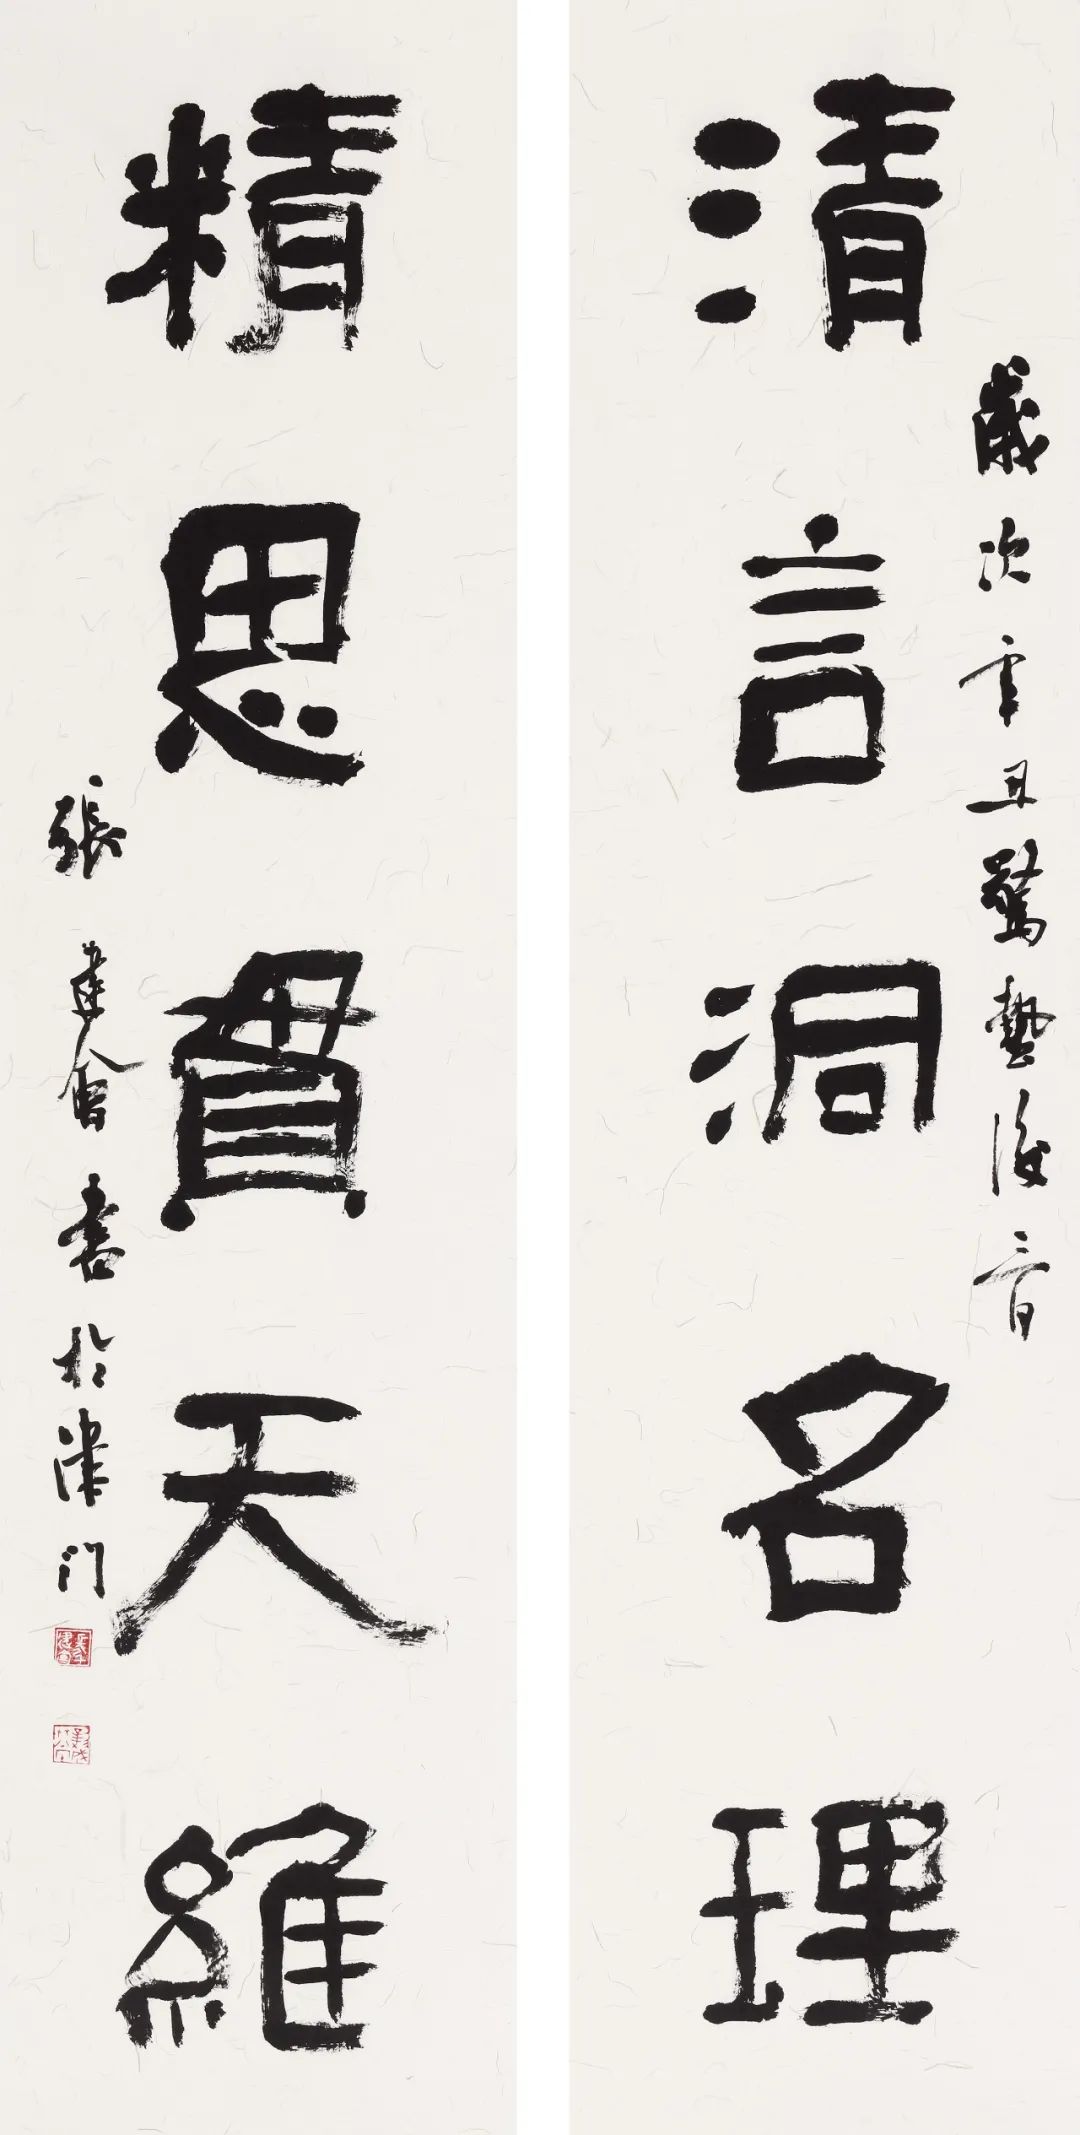 清言洞名理
歲次辛丑驚藝後三日
精思貫天維
張建會書於津門